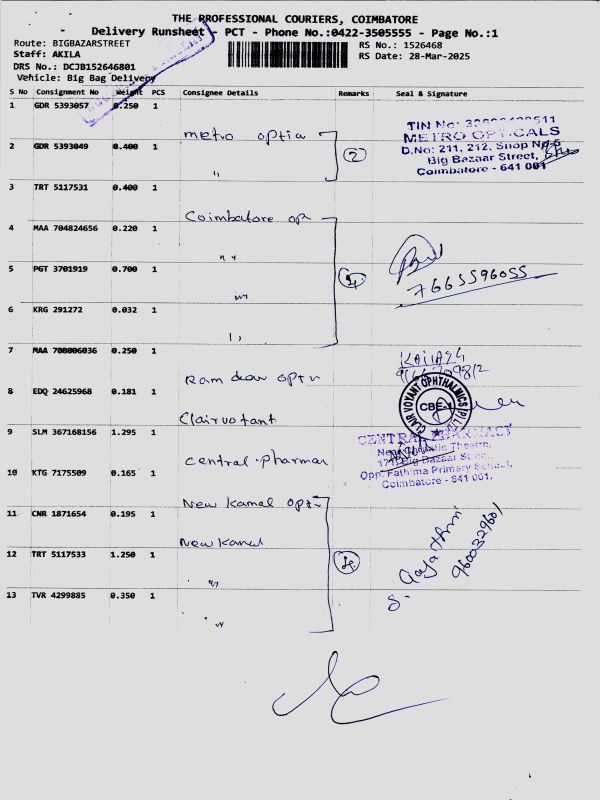 THE PROFESSIONAL COURIERS, COIMBATORE
Delivery Runsheet - PCT - Phone No.:0422-3505555 - Page No.:1
Route: BIGBAZARSTREET
RS No.: 1526468
Staff: AKILA
RS Date: 28-Mar-2025
DRS No.: DCJB152646801
Vehicle: Big Bag Delivery
S No Consignment No Weight PCS Consignee Details Remarks Seal & Signature
1 GDR 5393057 0.250 1
metro optia
2 GDR 5393049 0.400 1
"
2
TIN No:
METRO OPTICALS
D.No: 211, 212, Shop No-6
Big Bazaar Street,
Coimbatore - 641 001
3 TRT 5117531 0.400 1
Coimbatore op
4 MAA 704824656 0.220 1
" "
5 PGT 3701919 0.700 1
"
4
7665596055
6 KRG 291272 0.032 1
"
7 MAA 708006036 0.250 1
Ram dev optr
KAILASH
8 EDQ 24625968 0.181 1
Clairvotant
CLAIR VOYANT OPHTHALMICS (P) L
CBE-1
9 SLM 367168156 1.295 1
central pharmar
CENTRAL PHARMACY
Theatre,
171, Big Bazaar Street,
Opp. Fathima Primary School,
Coimbatore - 641 001.
10 KTG 7175509 0.165 1
New Kamal opt
11 CNR 1871654 0.195 1
New Kamal
12 TRT 5117533 1.250 1
"
4
13 TVR 4299885 0.350 1
"
S.
9600329601